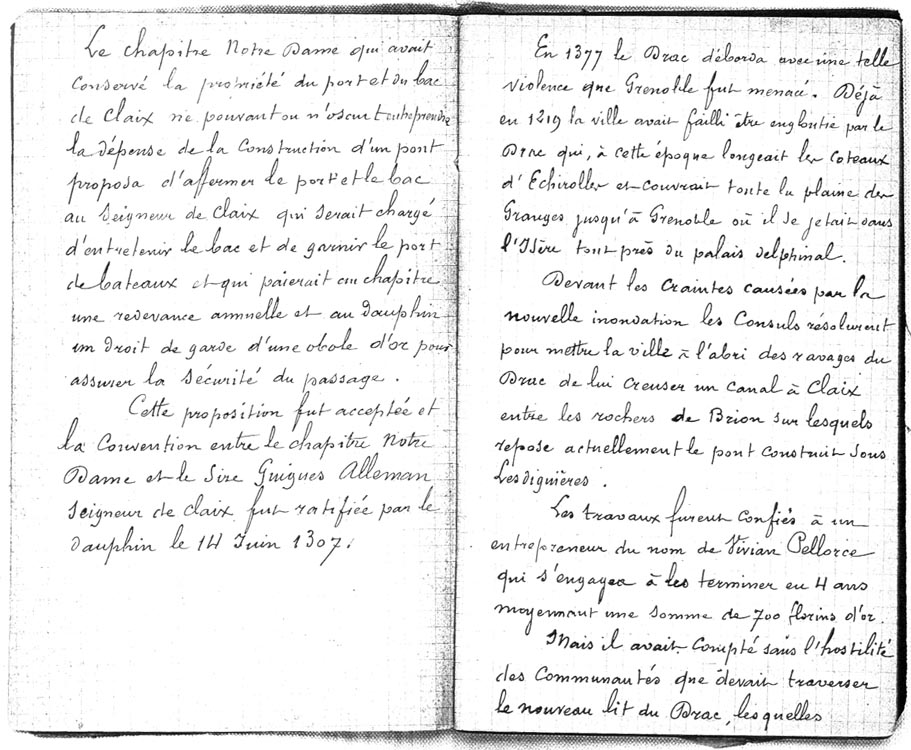 Le chapitre Notre Dame qui avait
conservé la propriété du port et du bac
de Claix ne pouvant ou n'osant entreprendre
la dépense de la construction d'un pont
proposa d'affermer le port et le bac
au Seigneur de Claix qui serait chargé
d'entretenir le bac et de garnir le port
de bateaux et qui paierait au chapitre
une redevance annuelle et au dauphin
un droit de garde d'une obole d'or pour
assurer la sécurité du passage.
Cette proposition fut acceptée et
la Convention entre le chapitre Notre
Dame et le Sire Guigues Alleman
Seigneur de Claix fut ratifiée par le
dauphin le 14 Juin 1307.
En 1377 le Drac déborda avec une telle
violence que Grenoble fut menacé. Déjà
en 1219 la ville avait failli être engloutie par le
Drac qui, à cette époque longeait les coteaux
d'Echirolles et couvrait toute la plaine des
Granges jusqu'à Grenoble où il se jetait dans
l'Isère tout près du palais delphinal.
Devant les craintes causées par la
nouvelle inondation les Consuls résolurent
pour mettre la ville à l'abri des ravages du
Drac de lui creuser un canal à Claix
entre les rochers de Brion sur lesquels
repose actuellement le pont construit sous
Lesdiguières.
Les travaux furent confiés à un
entrepreneur du nom de Vivian Pellorce
qui s'engagea à les terminer en 4 ans
moyennant une somme de 700 florins d'or.
Mais il avait compté sans l'hostilité
des Communautés que devait traverser
le nouveau lit du Drac, lesquelles